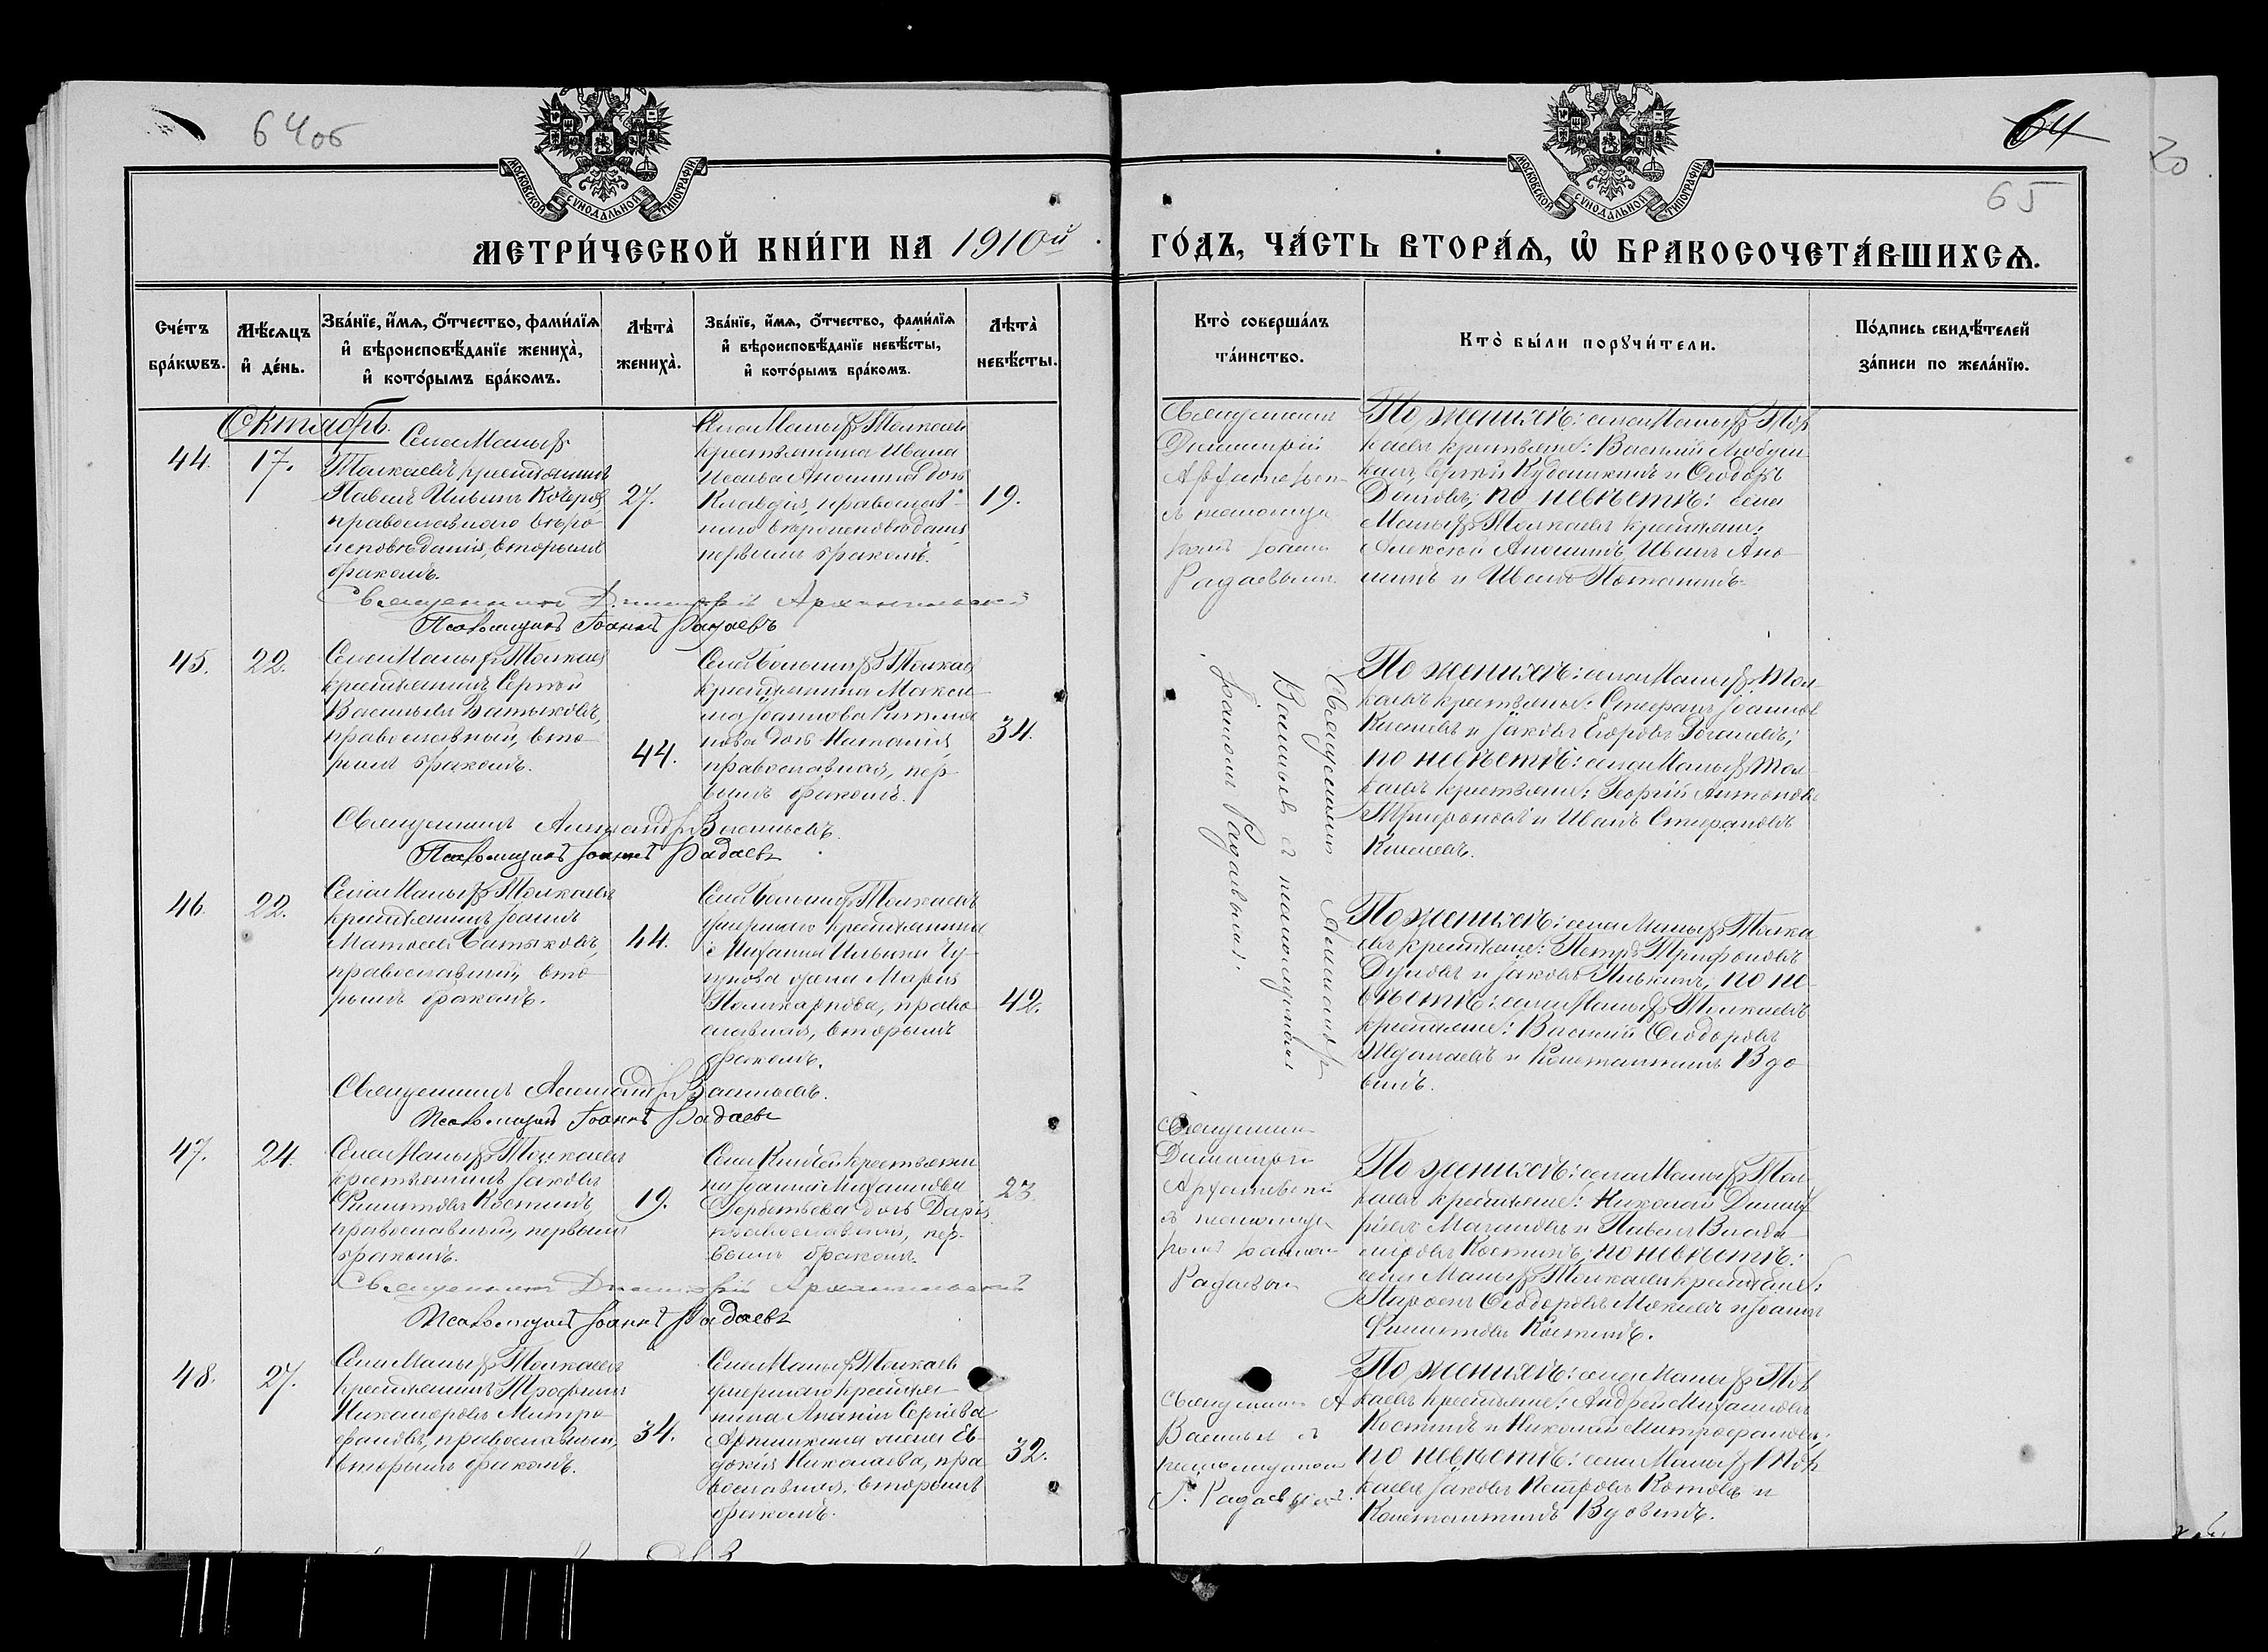 64об
64
20
65
МОСКОВСКОЙ СѴНОДАЛЬНОЙ ТИПОГРАФІИ
МОСКОВСКОЙ СѴНОДАЛЬНОЙ ТИПОГРАФІИ
МЕТРИ́ЧЕСКОЙ КНИ́ГИ НА 1910й
ГО́ДЪ, ЧА́СТЬ ВТОРА́Ѧ, Ѽ БРАКОСОЧЕТА́ВШИХСѦ.
Сче́тъ
бра́кѡвъ.
Мѣ́сѧцъ
и҆ де́нь.
Зва́нїе, и҆́мѧ, ѻ҆́тчество, фами́лїѧ
и҆ вѣроисповѣ́данїе жениха̀,
и҆ кото́рымъ бра́комъ.
Лѣта̀
жениха̀.
Зва́нїе, и҆́мѧ, ѻ҆́тчество, фами́лїѧ
и҆ вѣроисповѣ́данїе невѣ́сты,
и҆ кото́рымъ бра́комъ.
Лѣта̀
невѣ́сты.
Кто̀ соверша́лъ
та́инство.
Кто̀ бы́ли порꙋчи́тели.
По́дпись свидѣ́телей
за́писи по жела́нїю.
Октябрь.
44.
17.
Села Малыхъ
Толкаевъ крестьянинъ
Павелъ Ильинъ
православнаго вѣро-
исповѣданія, вторымъ
бракомъ.
27.
Села Малыхъ Толкаевъ
крестьянина Ивана
Аношина дочь
Клавдія, православ-
наго вѣроисповѣданія,
первымъ бракомъ.
19.
Священникъ
Димитрій
съ псаломщи-
комъ Іоанн.
Радаевымъ.
По женихѣ: села Малыхъ Тол-
каевъ крестьяне: Василій
Сергѣй Кубышкинъ и Ѳеодоръ
по невѣстѣ: села
Малыхъ Толкаевъ крестьяне:
Алексѣй Аношинъ, Иванъ Ано-
шинъ и Иванъ Потапинъ.
Священникъ Димитрій Архангельскій
Псаломщикъ Іоаннъ Радаевъ
45.
22.
Села Малыхъ Толкаевъ
крестьянинъ Сергѣй
Васильевъ Батыковъ,
православный, вто-
рымъ бракомъ.
44.
Села Большихъ Толкаевъ
крестьянина Макси-
ма Іоаннова
дочь Наталія
православная, пер-
вымъ бракомъ.
34.
Священникъ Александръ
Васильевъ съ псаломщикомъ
Іоанномъ Радаевымъ.
По женихѣ: села Малыхъ Тол-
каевъ крестьяне: Стефанъ Іоанновъ
Киселевъ и Іаковъ Егоровъ
по невѣстѣ: села Малыхъ Тол-
каевъ крестьяне: Георгій Антоновъ
и Иванъ Стефановъ
Киселевъ.
Священникъ Александръ Васильевъ.
Псаломщикъ Іоаннъ Радаевъ
46.
22.
Села Малыхъ Толкаевъ
крестьянинъ Іоаннъ
Матвѣевъ Батыковъ,
православный, вто-
рымъ бракомъ.
44.
Села Большихъ Толкаевъ
умершаго крестьянина
Михаила Ильина
жена Марія
Поликарпова, право-
славная, вторымъ
бракомъ.
42.
По женихѣ: села Малыхъ Толка-
евъ крестьяне: Петръ Трифоновъ
и Іаковъ по не-
вѣстѣ: села Малыхъ Толкаевъ
крестьяне: Василій Ѳеодоровъ
и Константинъ Вдо-
винъ.
Священникъ Александръ Васильевъ.
Псаломщикъ Іоаннъ Радаевъ
47.
24.
Села Малыхъ Толкаевъ
крестьянинъ Іаковъ
Филипповъ Костинъ,
православный, первымъ
бракомъ.
19.
Села крестьяни-
на Іоанна Михаилова
дочь Дарія
православная, пер-
вымъ бракомъ.
23.
Священник
Димитрій
Архангельскій
съ псаломщи-
комъ Іоанном
Радаевым
По женихѣ: села Малыхъ Тол-
каевъ крестьяне: Николай Димит-
ріевъ и Павелъ Влади-
міровъ Костинъ; по невѣстѣ:
села Малыхъ Толкаевъ крестьяне:
Ѳеодоровъ и Іоаннъ
Филипповъ Костинъ.
Священникъ Димитрій Архангельскій
Псаломщикъ Іоаннъ Радаевъ
48.
27.
Села Малыхъ Толкаевъ
крестьянинъ Трофимъ
Никаноровъ Митро-
фановъ, православный,
вторымъ бракомъ.
34.
Села Малыхъ Толкаевъ
умершаго крестья-
нина Ананіи Сергѣева
жена Ев-
докія Николаева, пра-
вославная, вторымъ
бракомъ.
32.
Священникъ А
Васильевъ съ
псаломщикомъ
І. Радаевымъ.
По женихѣ: села Малыхъ Тол-
каевъ крестьяне: Андрей Михаиловъ
Костинъ и Николай Митрофановъ;
по невѣстѣ: села Малыхъ Тол-
каевъ Іаковъ Петровъ Котовъ и
Константинъ Вдовинъ.